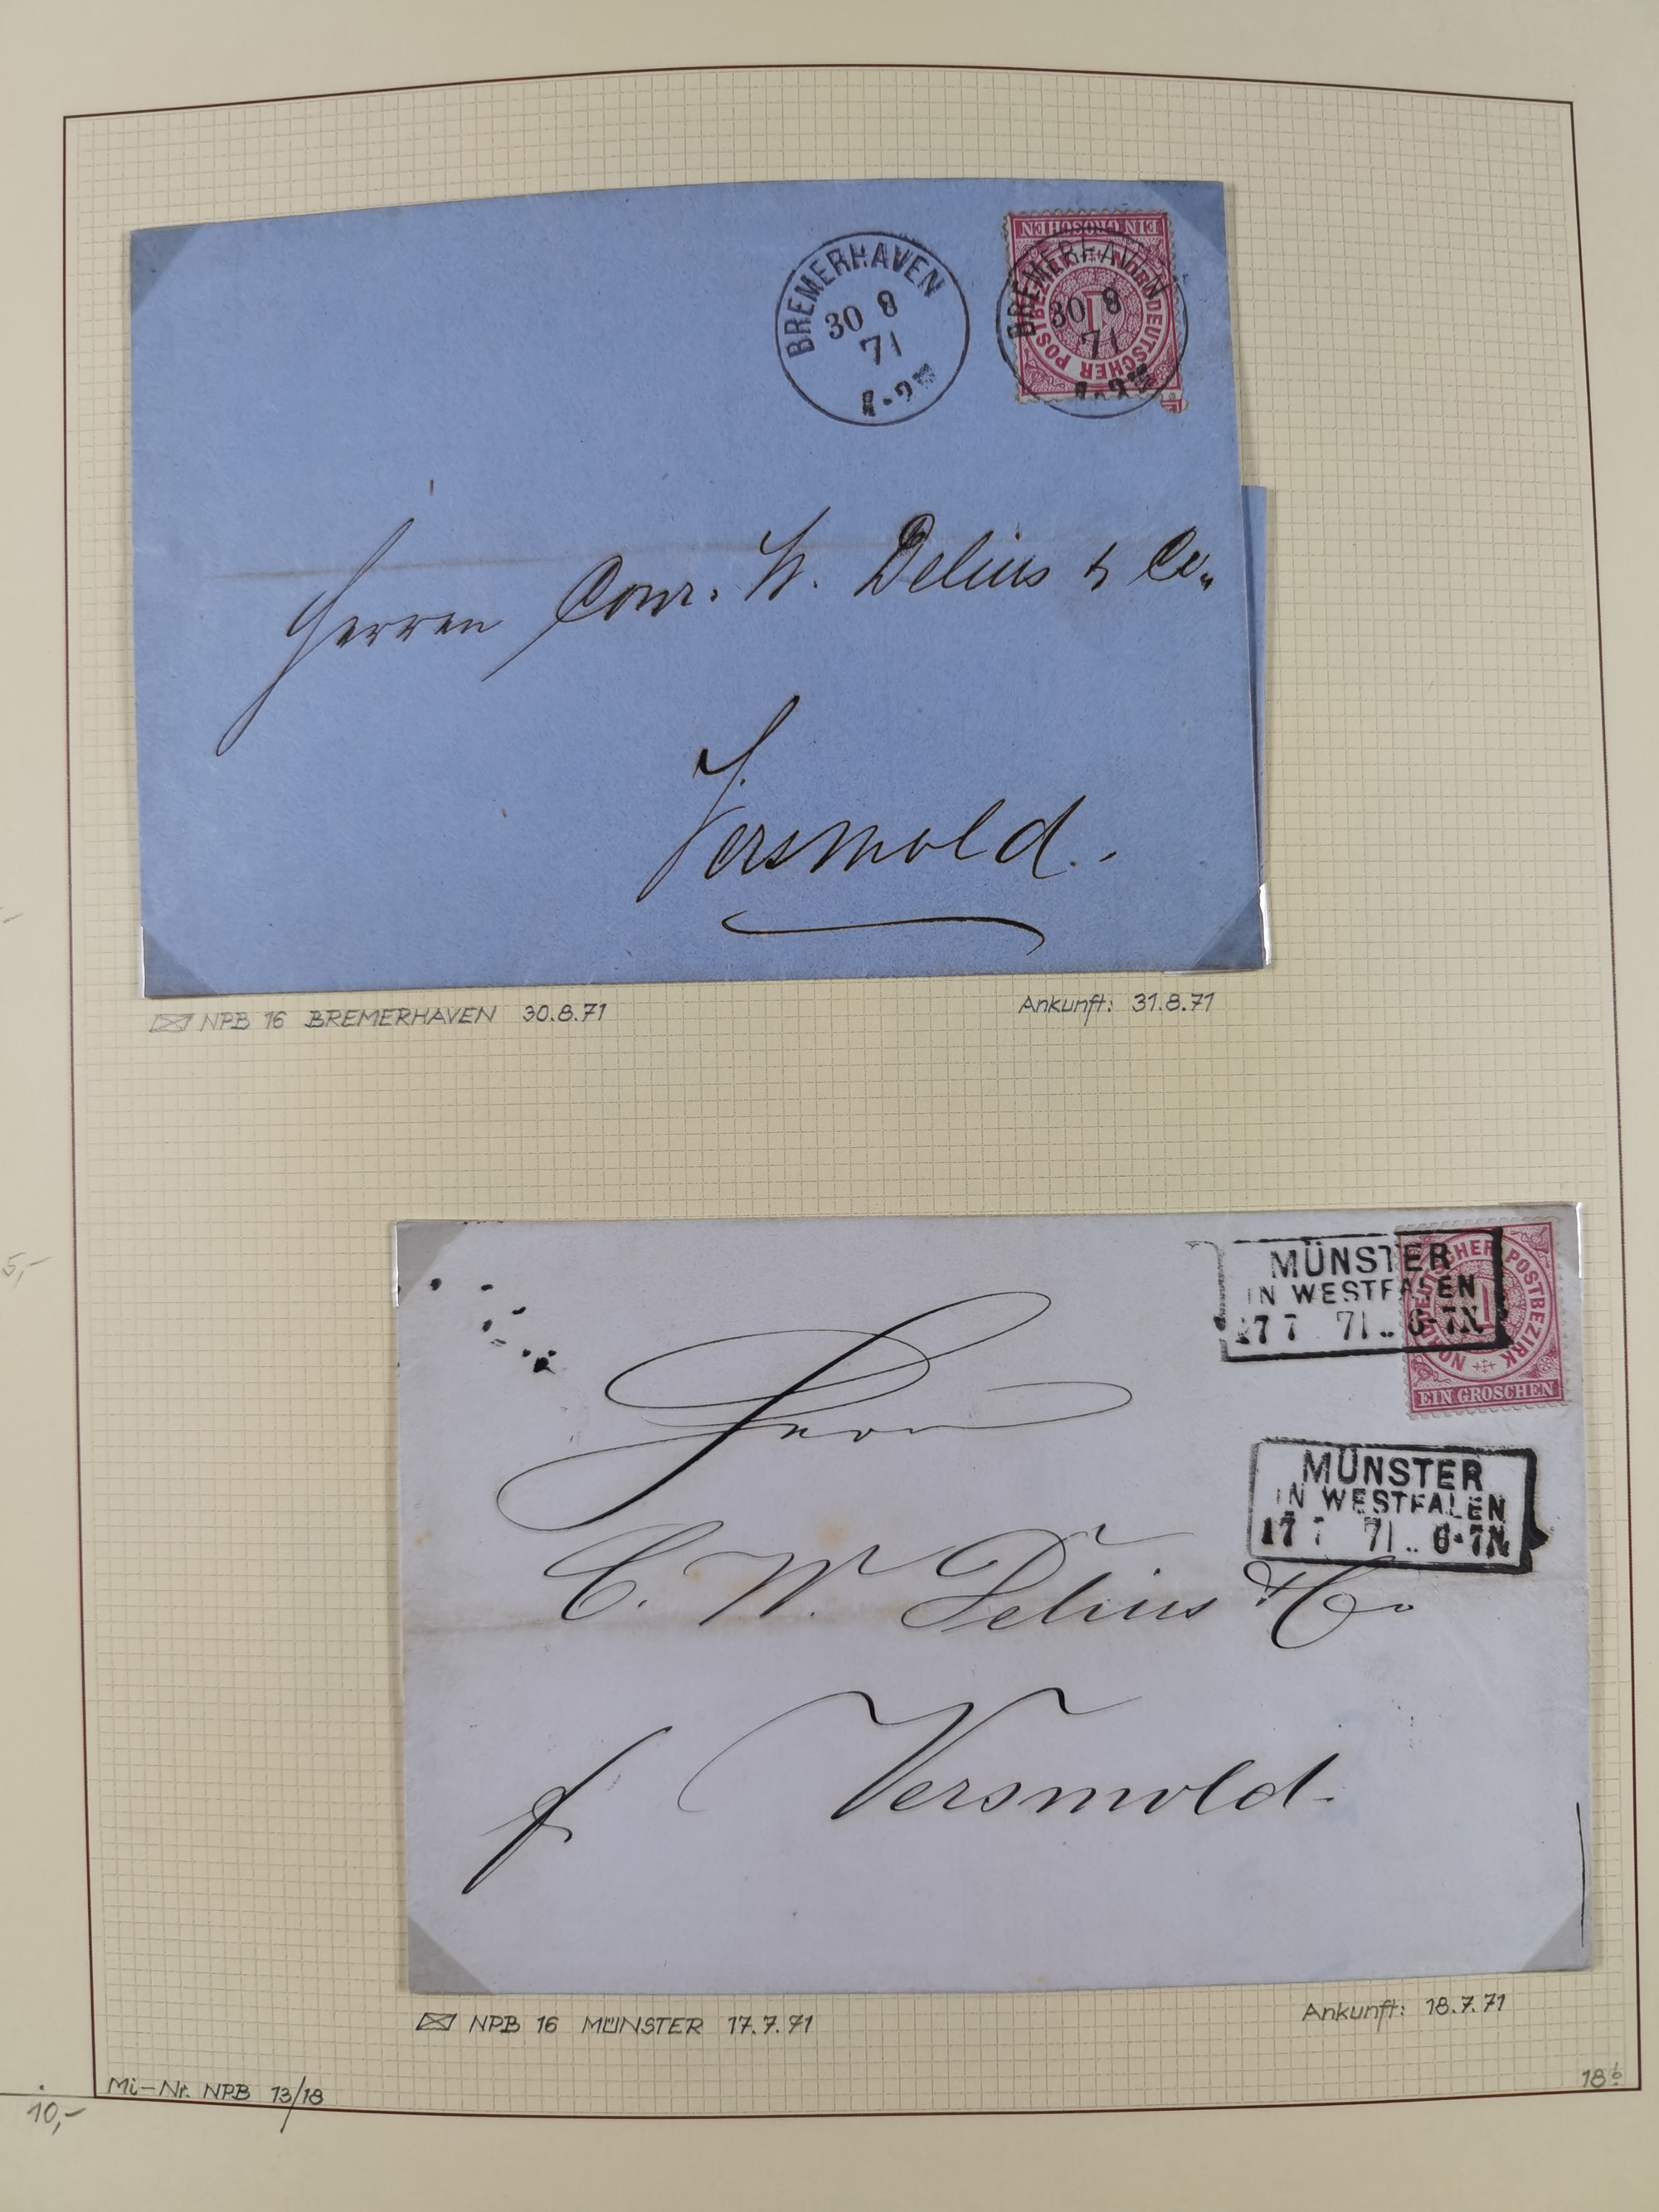 BREMERHAVEN
30 8
71
EIN GROSCHEN
NORDDEUTSCHER POSTBEZIRK
1
BREMERHAVEN
30 8
71
Herren Conr. W. Delius & Co.
Versmold.
NPB 16 BREMERHAVEN 30.8.71
Ankunft: 31.8.71
MÜNSTER
IN WESTFALEN
17 7 71.. 6-7N
NORDDEUTSCHER POSTBEZIRK
1
EIN GROSCHEN
MÜNSTER
IN WESTFALEN
17 7 71.. 6-7N
C. W. Delius & Co
Versmold.
NPB 16 MÜNSTER 17.7.71
Ankunft: 18.7.71
Mi-Nr. NPB 13/18
5,-
10,-